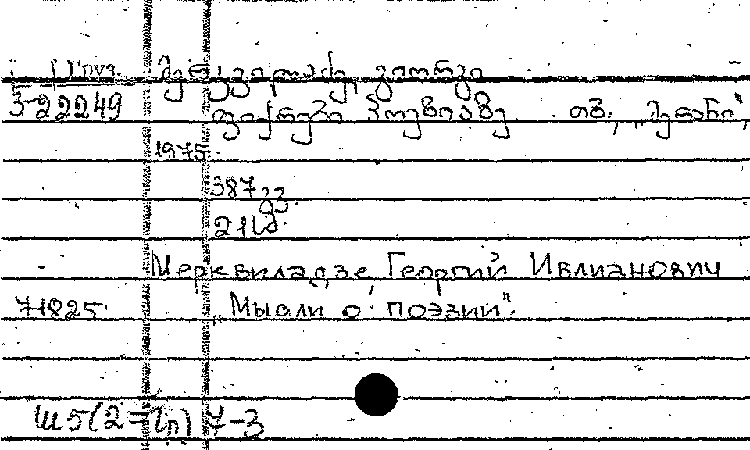 მერკვილაძე, გიორგი
Б-22249 ფიქრები პოეზიაზე. თბ., „მერანი“,
1975.
387 გვ.
21სმ.
Мерквиладзе, Георгий Ивлианович
71825. „Мысли о поэзии“.
Ш5(2=Гр)7-3